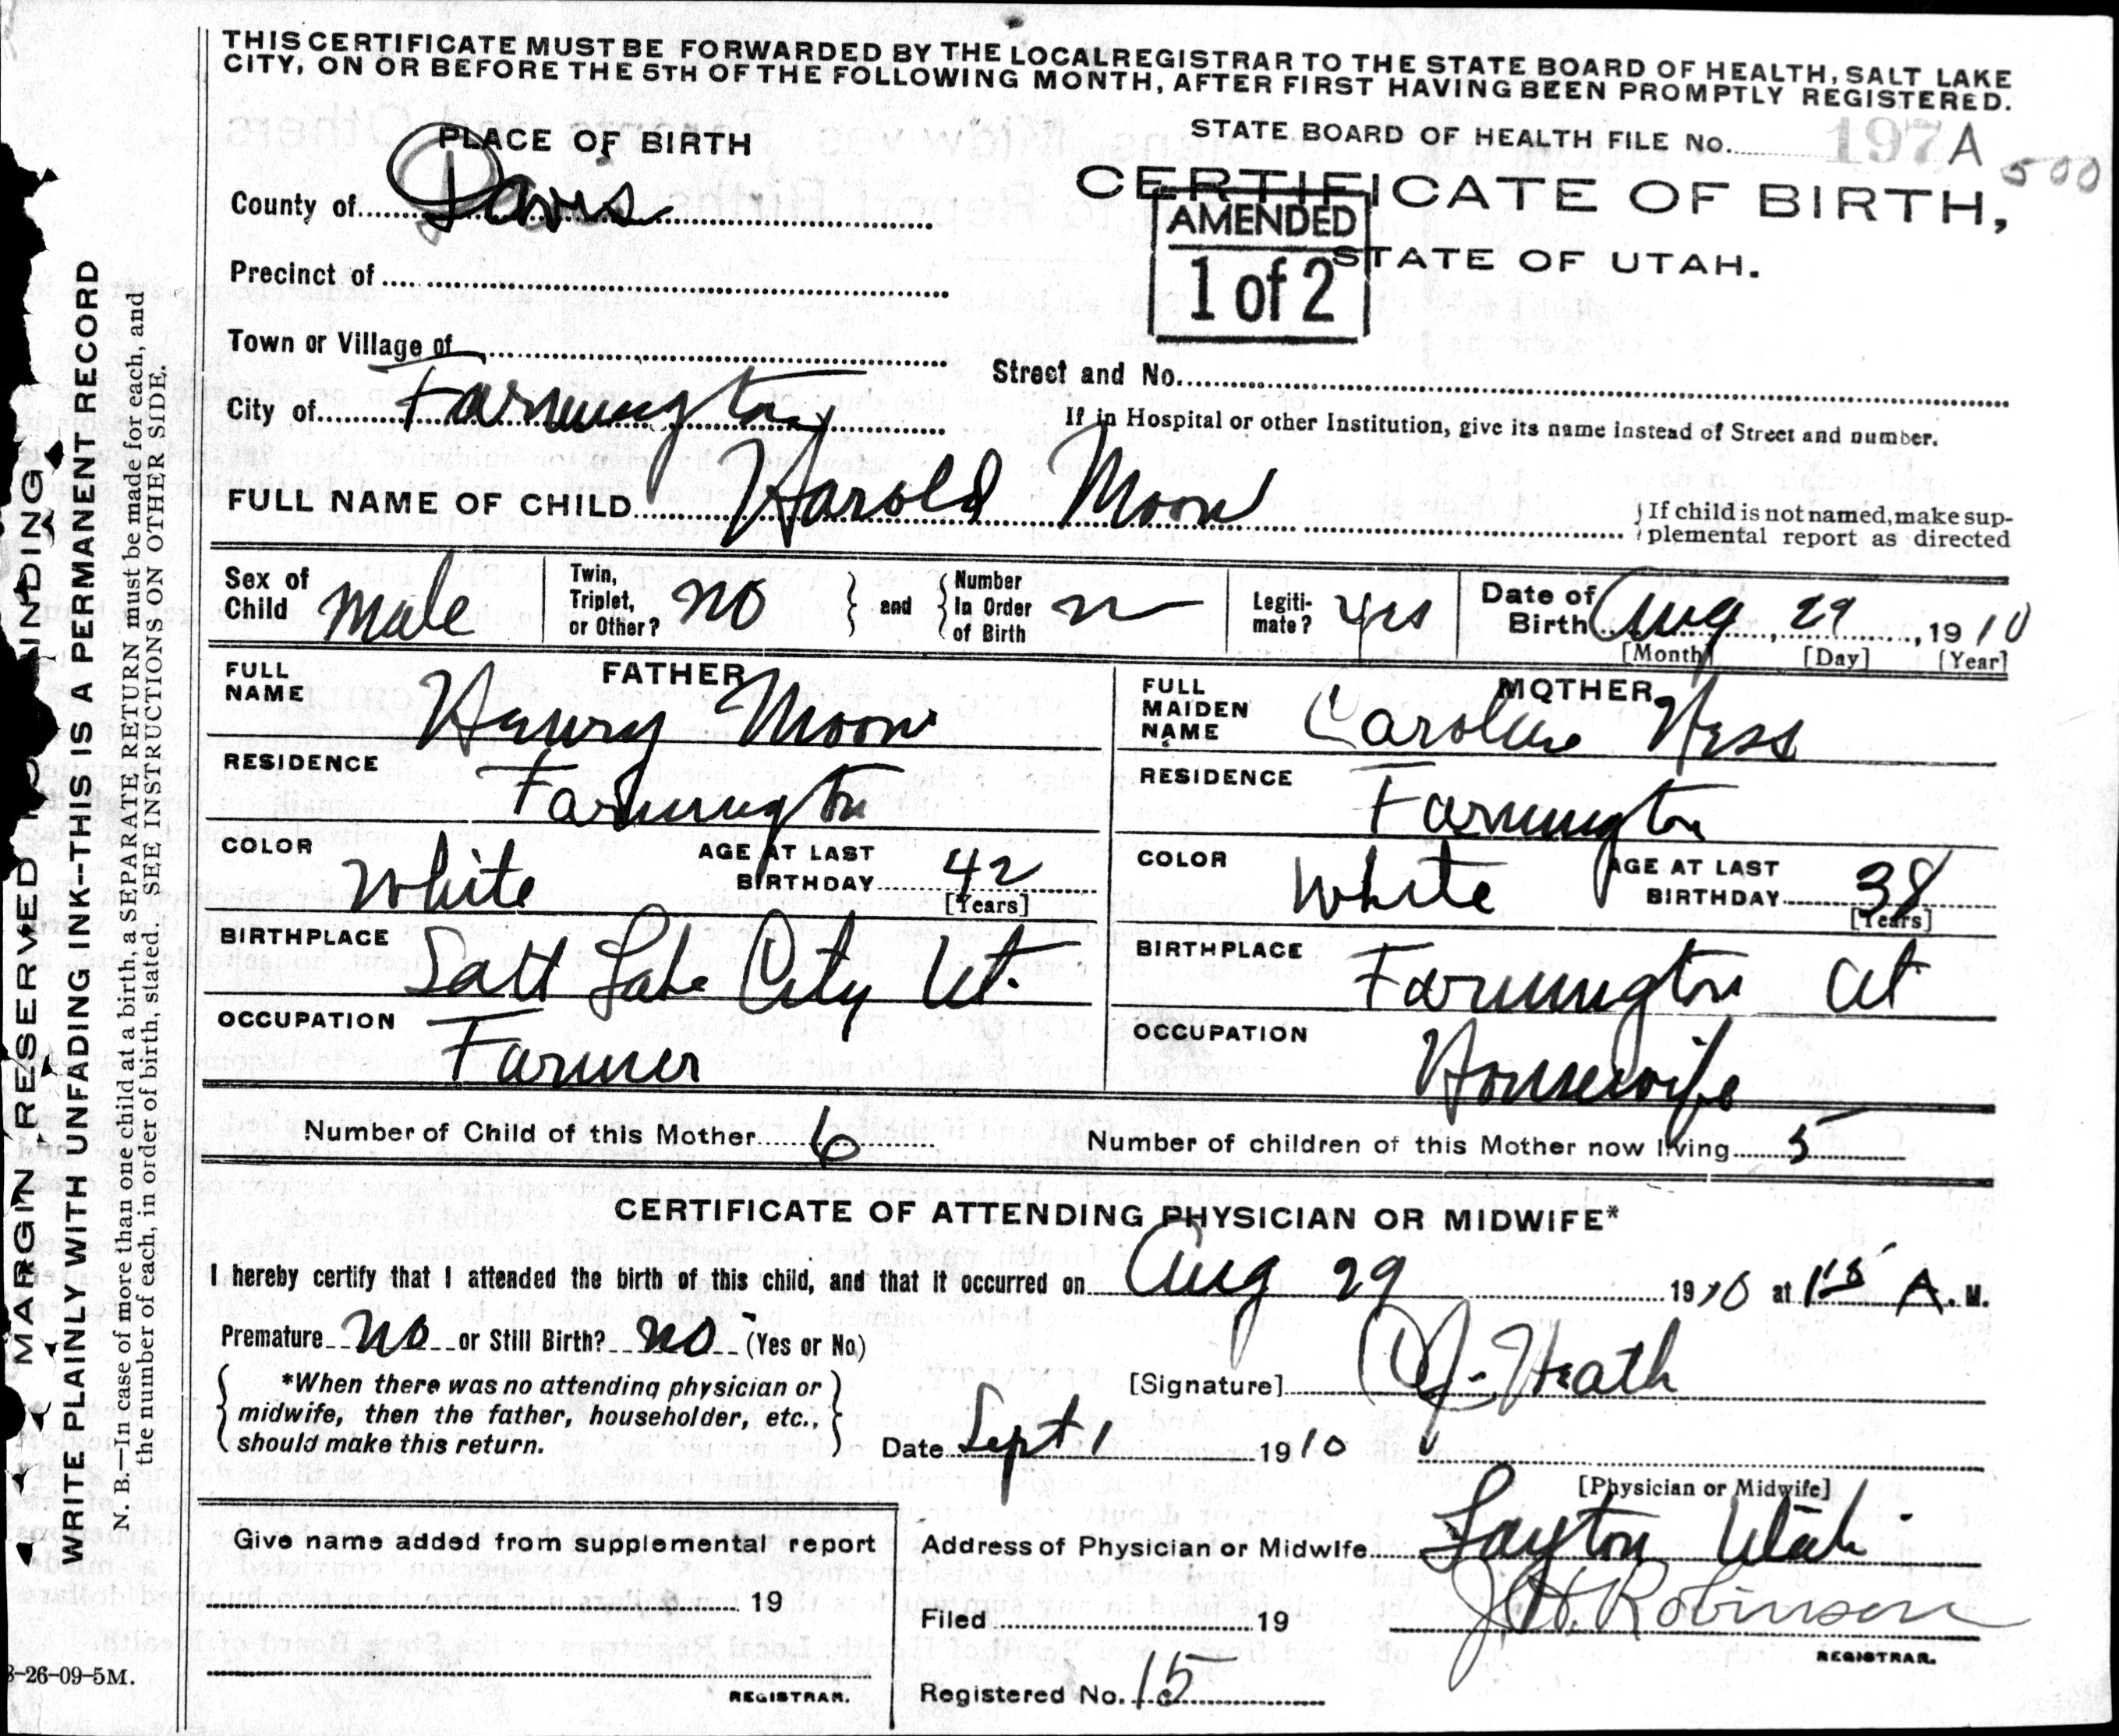 THIS CERTIFICATE MUST BE FORWARDED BY THE LOCAL REGISTRAR TO THE STATE BOARD OF HEALTH, SALT LAKE
CITY, ON OR BEFORE THE 5TH OF THE FOLLOWING MONTH, AFTER FIRST HAVING BEEN PROMPTLY REGISTERED.
STATE BOARD OF HEALTH FILE No. 197 A 500
PLACE OF BIRTH
CERTIFICATE OF BIRTH,
County of Davis
AMENDED
1 of 2
STATE OF UTAH.
Precinct of
Town or Village of
Street and No.
City of Farmington
If in Hospital or other Institution, give its name instead of Street and number.
FULL NAME OF CHILD Harold Moon
If child is not named, make sup-
plemental report as directed
Sex of Child Male
Twin, Triplet, or Other? no
and
Number In Order of Birth
Legiti-mate? Yes
Date of Birth Aug 29, 1910
[Month] [Day] [Year]
FATHER
FULL NAME Henry Moon
RESIDENCE Farmington
COLOR White AGE AT LAST BIRTHDAY 42
[Years]
BIRTHPLACE Salt Lake City Ut.
OCCUPATION Farmer
MOTHER
FULL MAIDEN NAME Caroline Hess
RESIDENCE Farmington
COLOR White AGE AT LAST BIRTHDAY 38
[Years]
BIRTHPLACE Farmington Ut
OCCUPATION Housewife
Number of Child of this Mother 6 Number of children of this Mother now living 5
CERTIFICATE OF ATTENDING PHYSICIAN OR MIDWIFE*
I hereby certify that I attended the birth of this child, and that it occurred on Aug 29 1910 at 1 15 A. M.
Premature No or Still Birth? No (Yes or No)
*When there was no attending physician or
midwife, then the father, householder, etc.,
should make this return.
[Signature] Heath
Date Sept 1 1910
[Physician or Midwife]
Give name added from supplemental report
19
REGISTRAR.
Address of Physician or Midwife Layton Utah
Filed 19 J.H. Robinson
REGISTRAR.
Registered No. 15
MARGIN RESERVED INDING
WRITE PLAINLY WITH UNFADING INK--THIS IS A PERMANENT RECORD
N. B.—In case of more than one child at a birth, a SEPARATE RETURN must be made for each, and
the number of each, in order of birth, stated. SEE INSTRUCTIONS ON OTHER SIDE.
-26-09-5M.